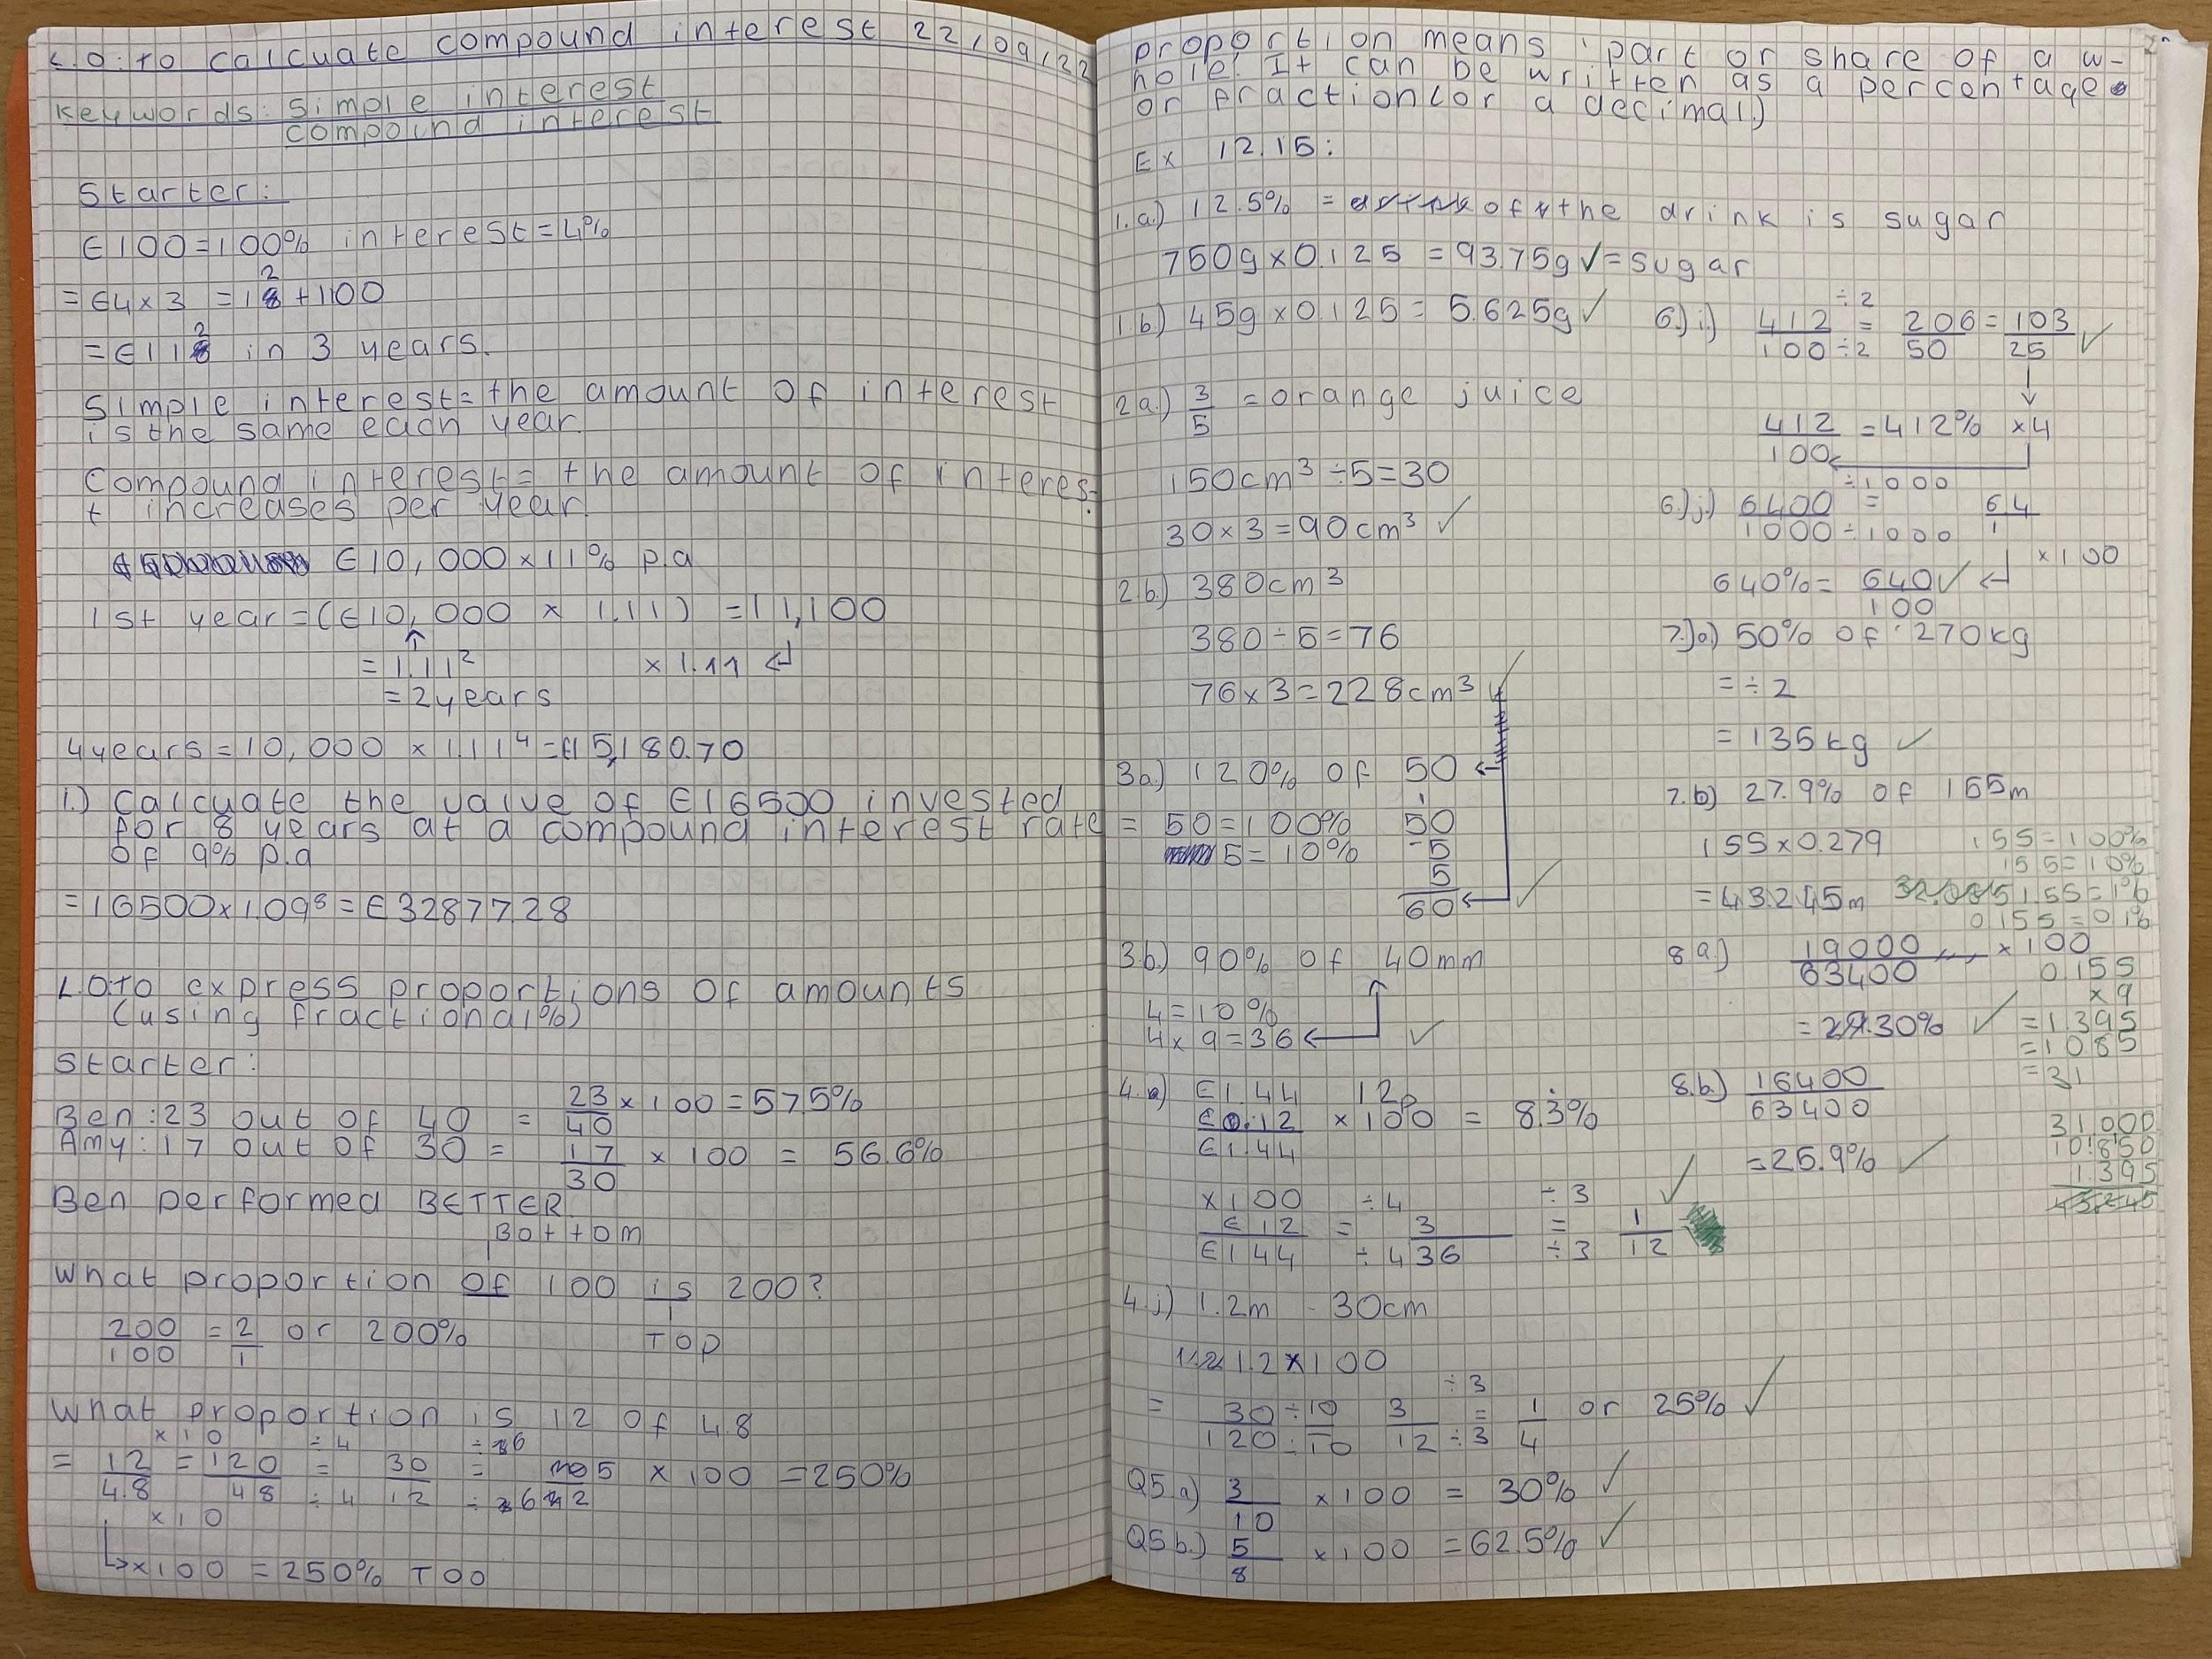 L.O: to calcuate compound interest 22/09/22
Keywords: Simple interest
compound interest
Starter:
€100=100% interest=4%
2
=€4×3 =18 +100
2
=€118 in 3 years.
Simple interest= the amount of interest
is the same each year.
Compound interest= the amount of interes-
t increases per year.
€10,000×11% p.a
1st year=(€10,000 × 1.11) =11,100
=1.11² ×1.11
=2years
4years=10,000 ×1.11⁴=€15,180.70
1.) Calcuate the value of €16500 invested
for 8 years at a compound interest rate
of 9% p.a
=16500×1.09⁸=€32877.28
L.O to express proportions of amounts
(using fractional%)
Starter:
Ben:23 out of 40 = 23/40 ×100=57.5%
Amy:17 out of 30 = 17/30 × 100 = 56.6%
Ben performed BETTER.
Bottom
What proportion of 100 is 200?
200/100 = 2/1 or 200% TOP
What proportion is 12 of 4.8
×10 ÷4 ÷6
= 12/4.8 = 120/48 = 30/12 = 5/2 × 100 =250%
×10 ÷4 ÷6
↳×100 =250% TOO
proportion means 'part or share of a w-
hole'. It can be written as a percentage
or fraction(or a decimal.)
Ex 12.15:
1.a.) 12.5% = of the drink is sugar
750g×0.125 =93.75g✓=sugar
1.b) 45g×0.125= 5.625g✓
2a.) 3/5 =orange juice
150cm³÷5=30
30×3=90cm³ ✓
2.b.) 380cm³
380÷5=76
76×3=228cm³ ✓
3a.) 120% of 50
= 50=100% 50
5=10% 5
5
60 ✓
3.b.) 90% of 40mm
4=10%
4×9=36 ✓
4.a) €1.44 12p
€0.12/€1.44 ×100 = 8.3̇%
×100 ÷4 ÷3 ✓
€12/€144 = 3/36 = 1/12
÷4 ÷3
4.j) 1.2m - 30cm
1.2×100
÷3
= 30÷10/120÷10 3/12 = 1/4 or 25% ✓
÷3
Q5.a) 3/10 ×100 = 30% ✓
Q5b.) 5/8 ×100 =62.5% ✓
÷2
6.)i.) 412/100 = 206/50 = 103/25 ✓
÷2
412/100 =412% ×4
÷1000
6.)j.) 6400/1000 = 6.4/1
÷1000
×100
640%= 640/100 ✓
7.)a.) 50% of 270kg
=÷2
=135kg ✓
7.b) 27.9% of 155m
155×0.279
=43.245m
155=100%
15.5=10%
1.55=1%
0.155=0.1%
8.a) 19000/63400 ×100
= 30% ✓
0.155
×9
=1.395
=10.85
=31
8.b.) 16400/63400
=25.9% ✓
31.000
10.850
1.395
43.245